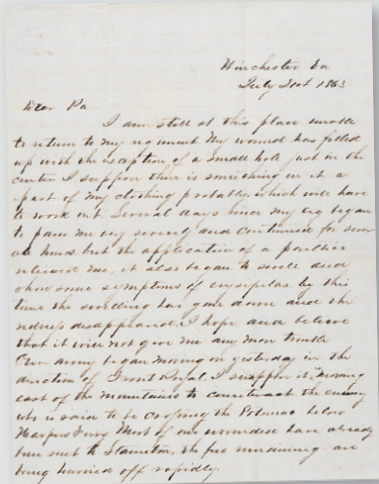 Winchester Va
July 21st 1863
Dear Pa
I am still at this place unable
to return to my regiment My wound has filled
up with the exception of a small hole just in the
center I suppose there is something in it a
part of my clothing probably which will have
to work out Several days since my leg began
to pain me very severely and continued for
hours but the application of a poultice
relieved me, it also began to swell and
show some symptoms of erysipelas by this
time the swelling has gone down and the
redness disappeared. I hope and believe
that it will not give me any more trouble
Our army began moving on yesterday in the
direction of Front Royal. I suppose it moving
east of the mountains to counteract the enemy
who is said to be crossing the Potomac below
Harpers Ferry Most of our wounded have already
been sent to Staunton, the few remaining are
being hurried off rapidly.